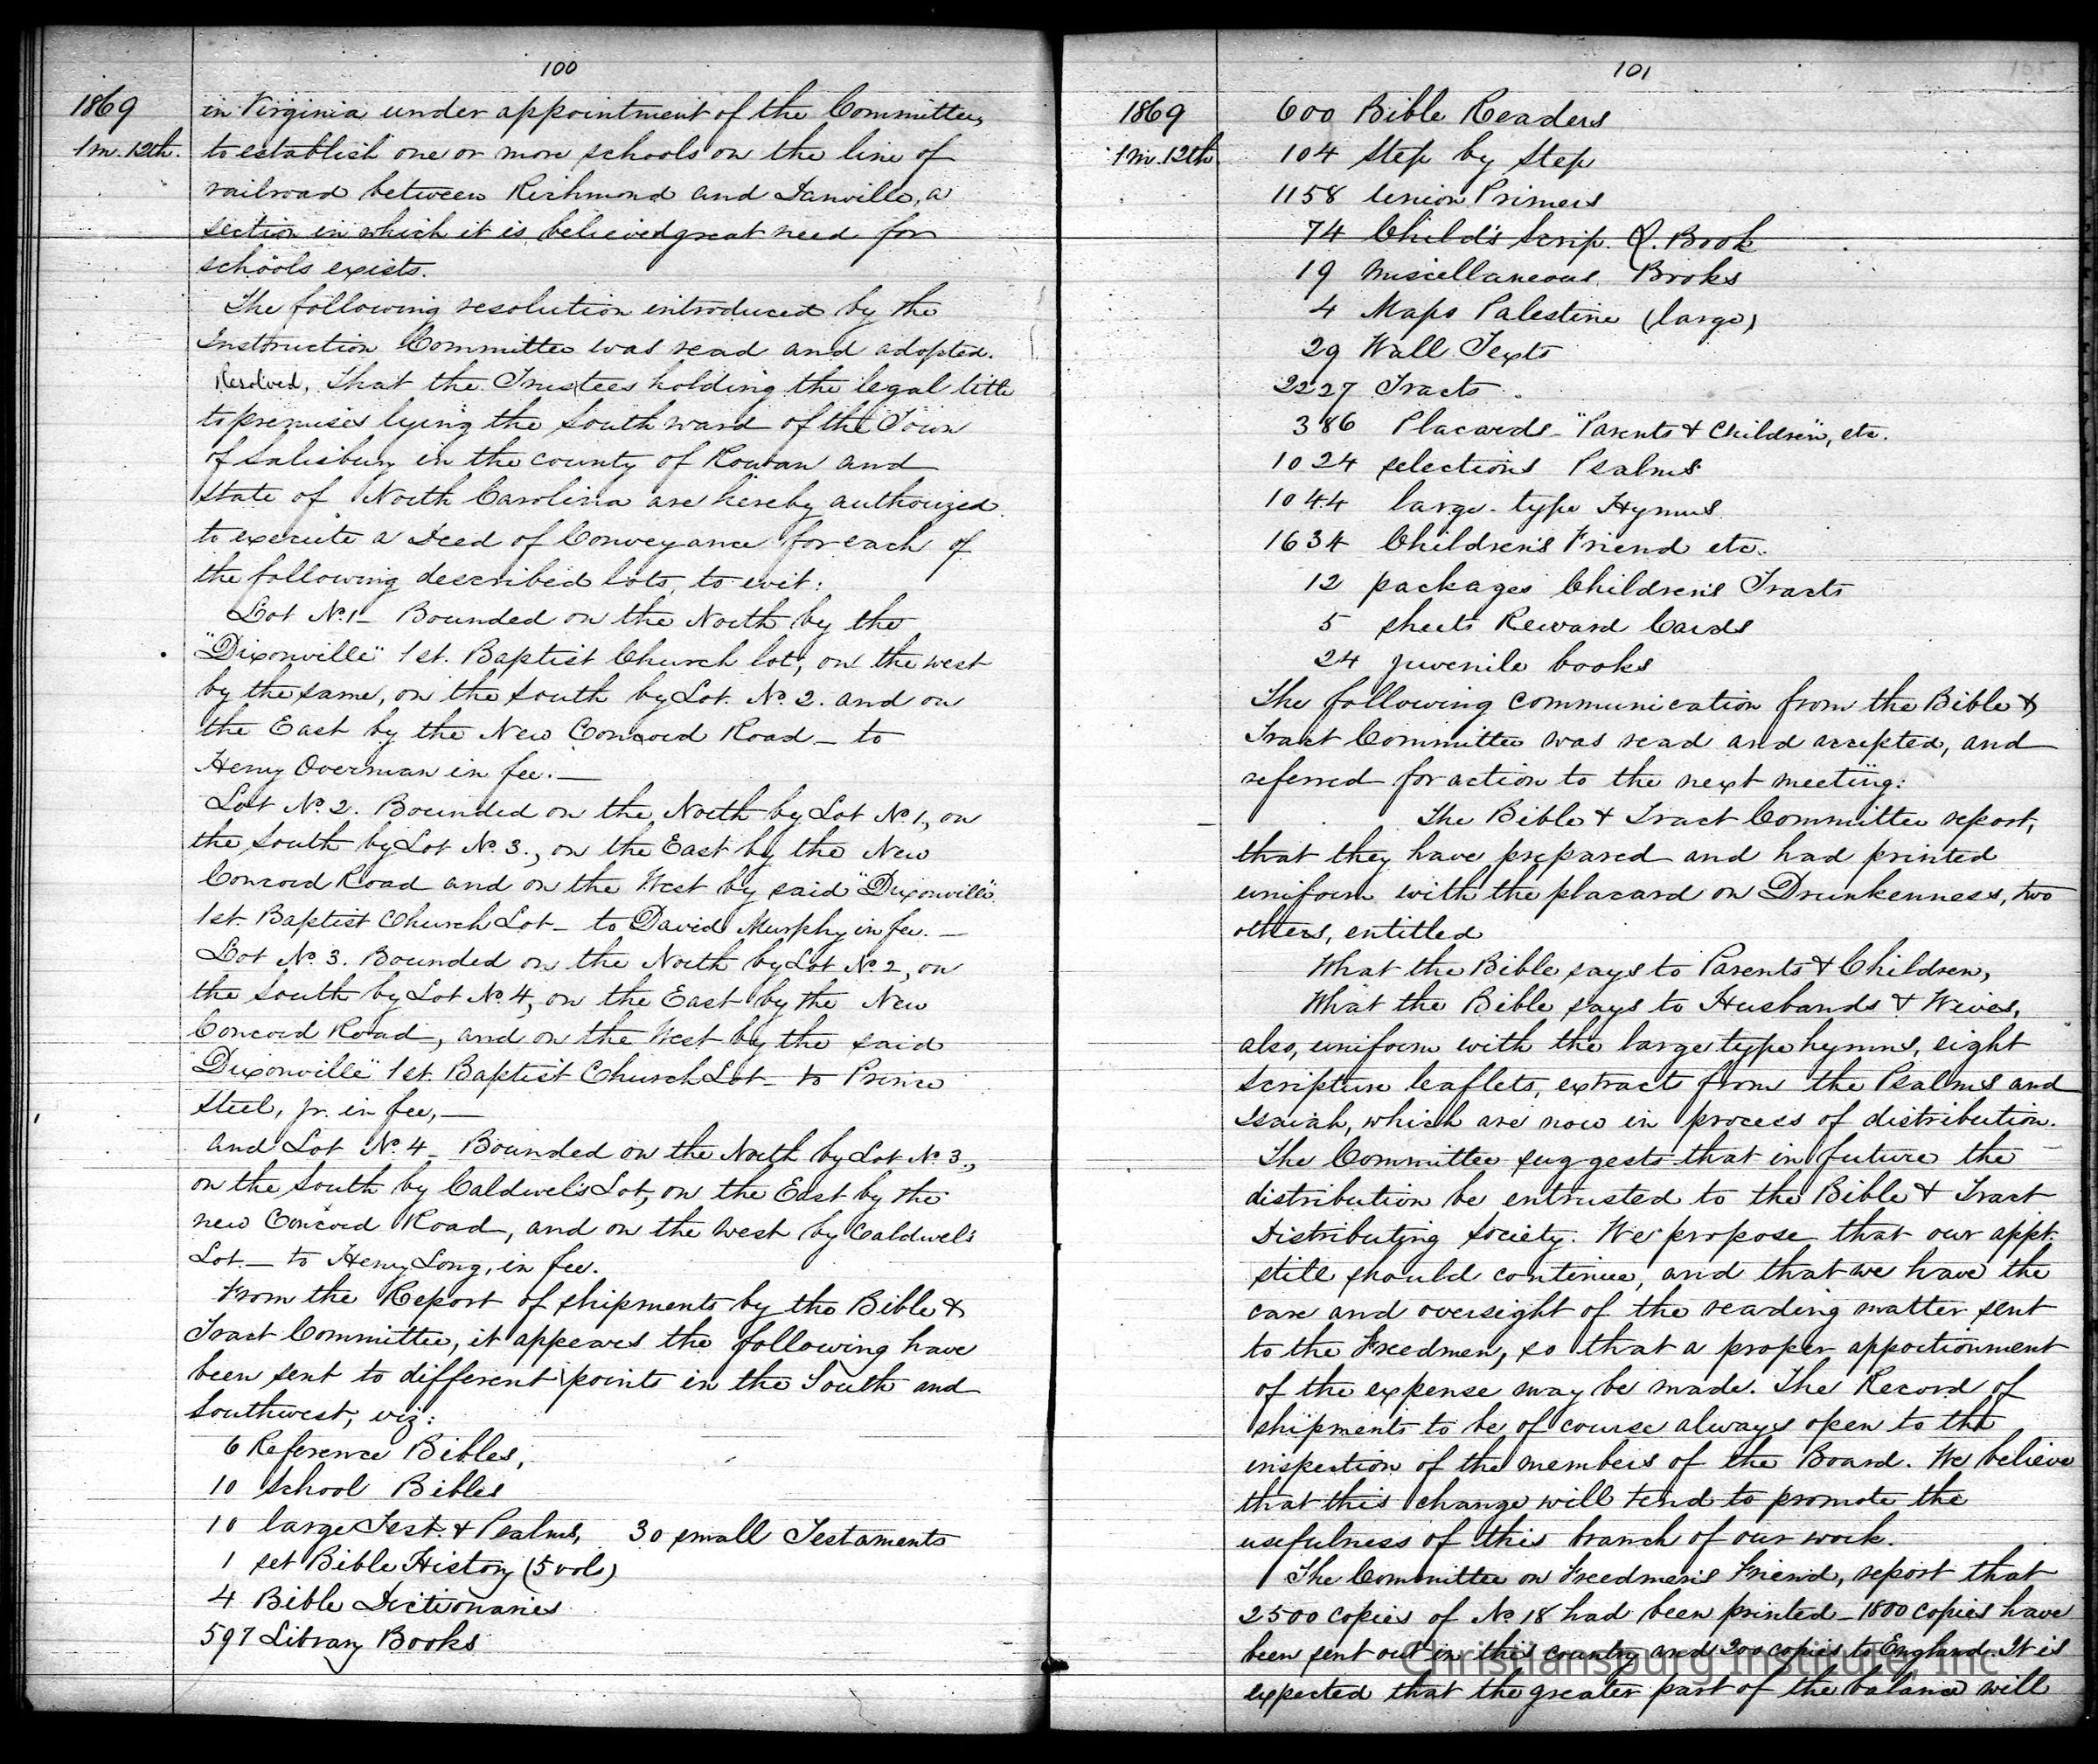 100
1869
1m.12th.
in Virginia under appointment of the Committee,
to establish one or more schools on the line of
railroad between Richmond and Danville, a
section in which it is believed great need for
schools exists.
The following resolution introduced by the
Instruction Committee was read and adopted.
Resolved, That the Trustees holding the legal title
to premises lying the South ward of the Town
of Salisbury in the county of Rowan and
State of North Carolina are hereby authorized
to execute a Deed of Conveyance for each of
the following described lots, to wit:
Lot No. 1 - Bounded on the North by the
"Dixonville" 1st. Baptist Church lot, on the west
by the same, on the South by Lot. No. 2. and on
the East by the New Concord Road - to
Henry Overman in fee. —
Lot No. 2. Bounded on the North by Lot No. 1, on
the South by Lot No. 3., on the East by the New
Concord Road and on the West by said "Dixonville"
1st. Baptist Church Lot - to David Murphy in fee. —
Lot No. 3. Bounded on the North by Lot No. 2, on
the South by Lot No. 4, on the East by the New
Concord Road, and on the West by the said
"Dixonville" 1st. Baptist Church Lot - to Prince
Steel, Jr. in fee, —
and Lot No. 4 - Bounded on the North by Lot No. 3.,
on the South by Caldwel's Lot, on the East by the
new Concord Road, and on the west by Caldwel's
Lot. — to Henry Long, in fee.
From the Report of shipments by the Bible &
Tract Committee, it appears the following have
been sent to different points in the South and
Southwest, viz:
6 Reference Bibles,
10 School Bibles
10 large Test. & Psalms, 30 small Testaments
1 set Bible History (5 vols)
4 Bible Dictionaries
597 Library Books
101
105
1869
1m.12th
600 Bible Readers
104 Step by Step
1158 Union Primers
74 Child's Scrip. Q. Book
19 Miscellaneous Books
4 Maps Palestine (large)
29 Wall Texts
2227 Tracts
386 Placards - "Parents & Children", etc.
1024 selections Psalms
1044 large-type Hymns
1634 Children's Friend etc.
12 packages Children's Tracts
5 sheets Reward Cards
24 juvenile books
The following communication from the Bible &
Tract Committee was read and accepted, and
referred for action to the next meeting:
The Bible & Tract Committee report,
that they have prepared and had printed
uniform with the placard on Drunkenness, two
others, entitled
What the Bible says to Parents & Children,
What the Bible says to Husbands & Wives,
also, uniform with the large type hymns, eight
Scripture leaflets, extracts from the Psalms and
Isaiah, which are now in process of distribution.
The Committee suggests that in future the
distribution be entrusted to the Bible & Tract
Distributing Society. We propose that our appt.
still should continue, and that we have the
care and oversight of the reading matter sent
to the Freedmen, so that a proper apportionment
of the expense may be made. The Record of
shipments to be of course always open to the
inspection of the members of the Board. We believe
that this change will tend to promote the
usefulness of this branch of our work.
The Committee on Freedmen's Friend, report that
2500 copies of No. 18 had been printed - 1800 copies have
been sent out in this country and 200 copies to England. It is
expected that the greater part of the balance will
Christiansburg Institute, Inc